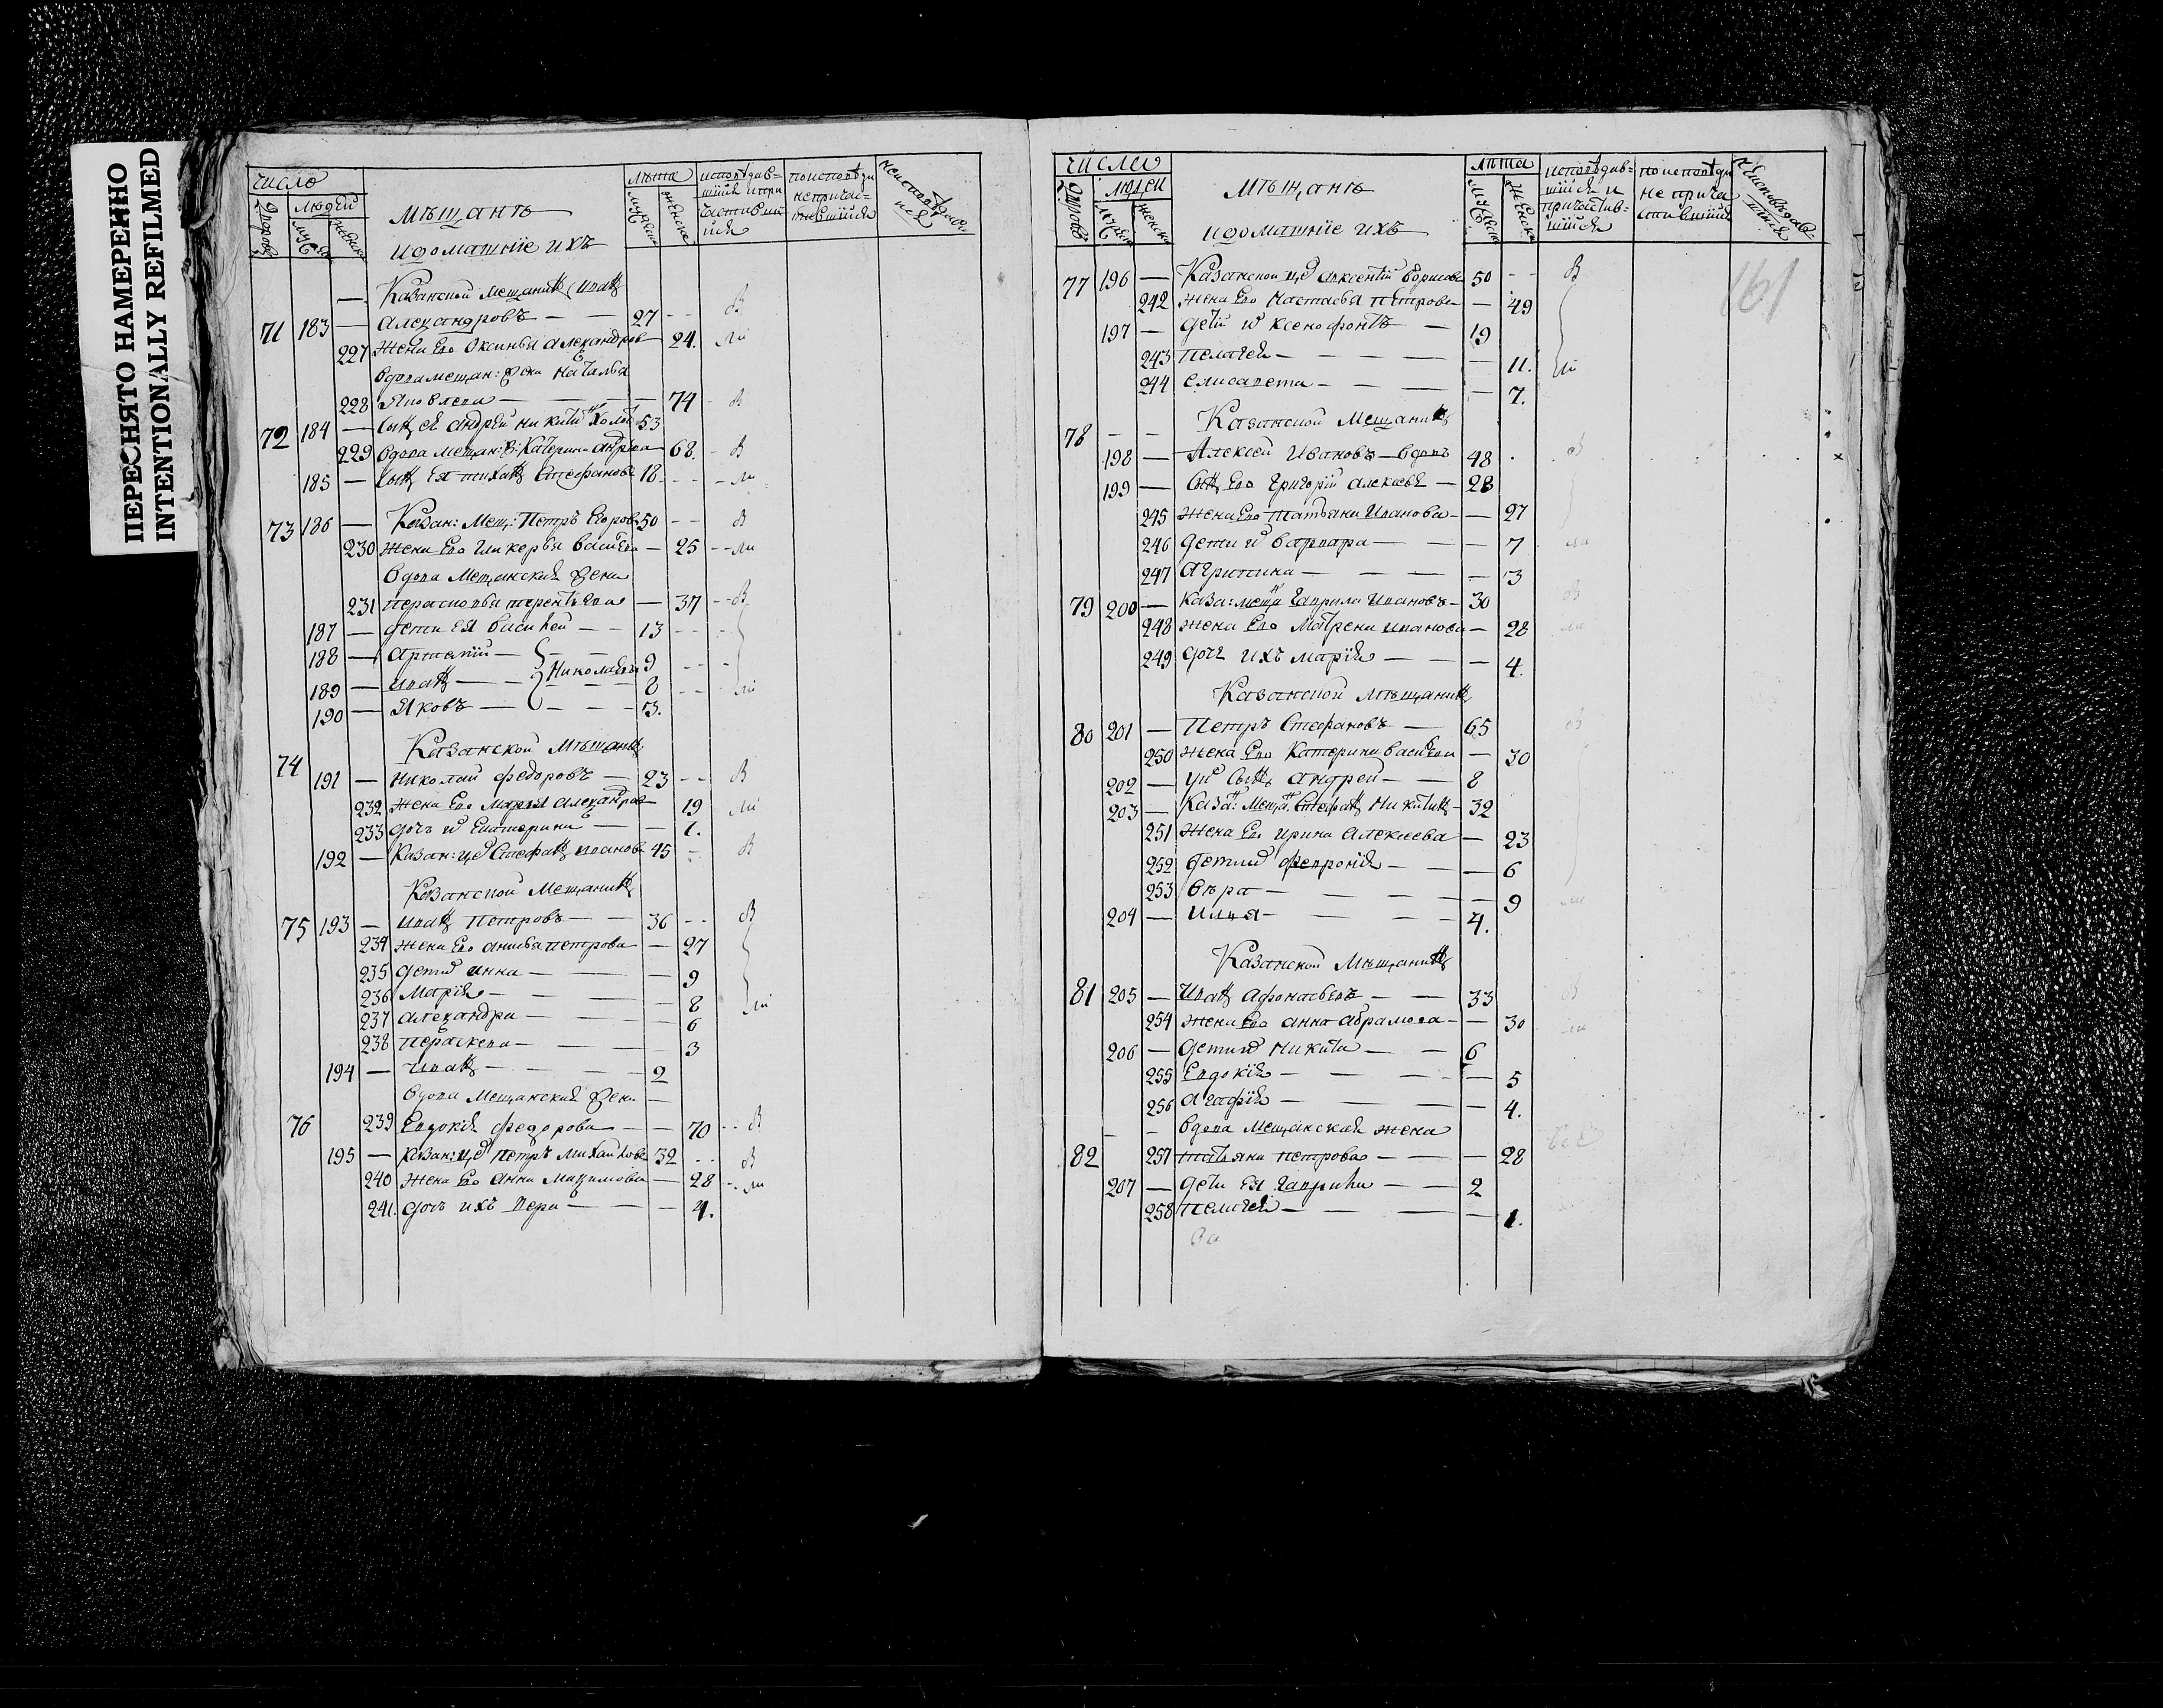 ПЕРЕСНЯТО НАМЕРЕННО
INTENTIONALLY REFILMED
число
людей
мѣщанъ
идоматніе ихъ
лѣта
Казанской мещанинъ Иванъ
71 183 — Александровъ — — 27
227 жена Ево Оксинья Александров — 24.
вдова мещан: жена Наталья
228 Яковлева — — — 74
72 184 — сынъ ея Андрей Никитинъ холос 53
229 вдова мещан: ж: Катерина Андреева — 68.
185 — сынъ Ея Стефановъ 18
73 186 — Казан: мещ: Петръ Егоров 50
230 жена Ево Гликерья Васильева — 25
вдова мещанская жена
231 Парасковья Терентьева — 37
187 — дети Ея Василей — — 13
188 — Артемий — — 9
189 — Иванъ — — Николаевы 8
190 — Яковъ — — 3.
Казанской мѣщанинъ
74 191 — Николай Федоровъ — 23
232 жена Ево Марья Александров — 19
233 дочь Екатерина — — 1.
192 — Казан: Стефанъ Иванов 45
Казанской мещанинъ
75 193 — Иванъ Петровъ — — 36
234 жена Ево Анисья Петрова — 27
235 дети Анна — — — 9
236 Марія — — — — 8
237 Александра — — — 6
238 Параскева — — — 3
194 — Иванъ — — — 2
вдова мещанская жена —
76 239 Евдокія Федорова — — 70
195 — Казан: Петръ Михайлов 32
240 жена Ево Анна Максимова — 28
241. дочь ихъ Вера — — — 4.
числа
людей
мѣщанъ
идоматніе ихъ
лѣта
исповѣдавшійся и причастившійся
161
77 196 — Казанской Авксентій Борисов 50
242 жена Ево Настасья Петрова — 49
197 — дети Ксенофонтъ — 19
243 Пелагея — — — — — 11.
244 Елисавета — — — — 7.
Казанской мещанинъ
78 — —
198 — Алексей Ивановъ — вдовъ 48
199 — сынъ Ево Григорій Алексеев — 28
245 жена Ево Татьяна Иванова — — 27
246 дети Варвара — — — 7
247 Агрипина — — — — 3
79 200 — Каза: меща Гаврила Ивановъ — 30
248 жена Ево Матрена Иванова — 28
249 дочь ихъ Марія — — — 4.
Казанской мѣщанинъ
80 201 — Петръ Стефановъ — 65
250 жена Ево Катерина Васильева — 30
202 — сынъ Андрей — — 8
203 — Казан: мещан: Стефанъ Никитинъ — 32
251 жена Ево Ирина Алексеева — 23
252 дети Февронія — — — 6
253 Вѣра — — — — — 9
204 — Илья — — — — 4.
Казанской мѣщанинъ
81 205 — Иванъ Афонасьевъ — — 33
254 жена Ево Анна Абрамова — — 30
206 — дети Никита — — 6
255 Евдокія — — — — — 5
256 Агафія — — — — — 4.
— — вдова мещанская жена
82 257 Татьяна Петрова — — — 28
207 — дети Ея Гаврила — — 2
258 Пелагея — — — — 1.